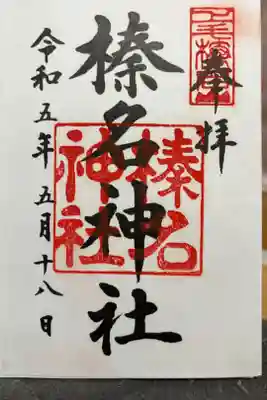 奉拝
榛名神社
榛名
神社
令和五年 五月十八日